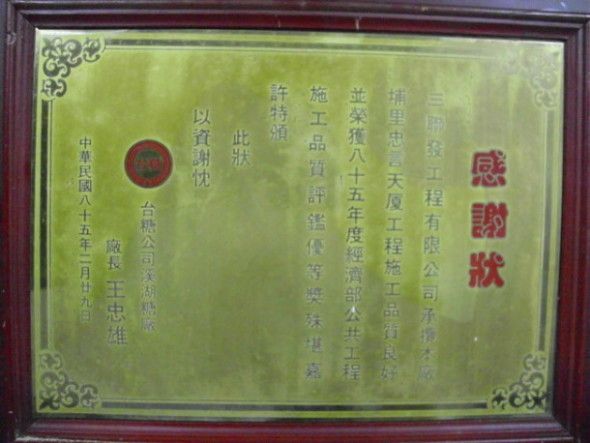 感謝狀
三聯發工程有限公司承攬本廠
埔里忠言天廈工程施工品質良好
並榮獲八十五年度經濟部公共工程
施工品質評鑑優等獎殊堪嘉
許特頒
此狀
以資謝忱
台糖公司溪湖糖廠
廠長 王忠雄
中華民國八十五年二月廿九日